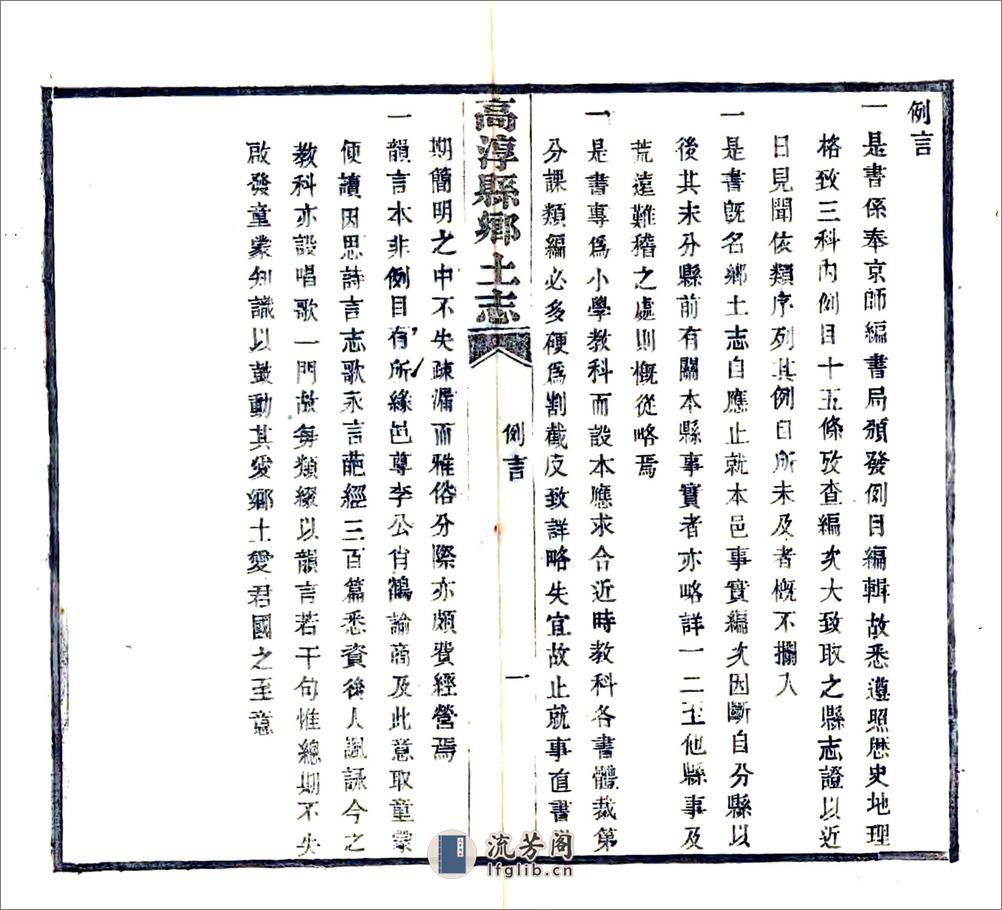 例言
一是書係奉京師編書局頒發例目編輯故悉遵照歷史地理
格致三科內例目十五條攷查編次大致取之縣志證以近
日見聞依類序列其例目所未及者概不攔入
一是書旣名鄉土志自應止就本邑事實編次因斷自分縣以
後其未分縣前有關本縣事實者亦略詳一二至他縣事及
荒遠難稽之處則概從略焉
一是書專爲小學教科而設本應求合近時教科各書體裁第
分課類編必多硬爲割截反致詳略失宜故止就事直書
高淳縣鄉土志
例言
一
期簡明之中不失疎漏而雅俗分際亦頗費經營焉
一韻言本非例目有所緣邑尊李公肖鶴諭商及此意取童蒙
便讀因思詩言志歌永言葩經三百篇悉資後人諷詠今之
教科亦設唱歌一門故每類綴以韻言若干句惟總期不失
啟發童蒙知識以鼓動其愛鄉土愛君國之至意
流芳阁
lfglib.cn